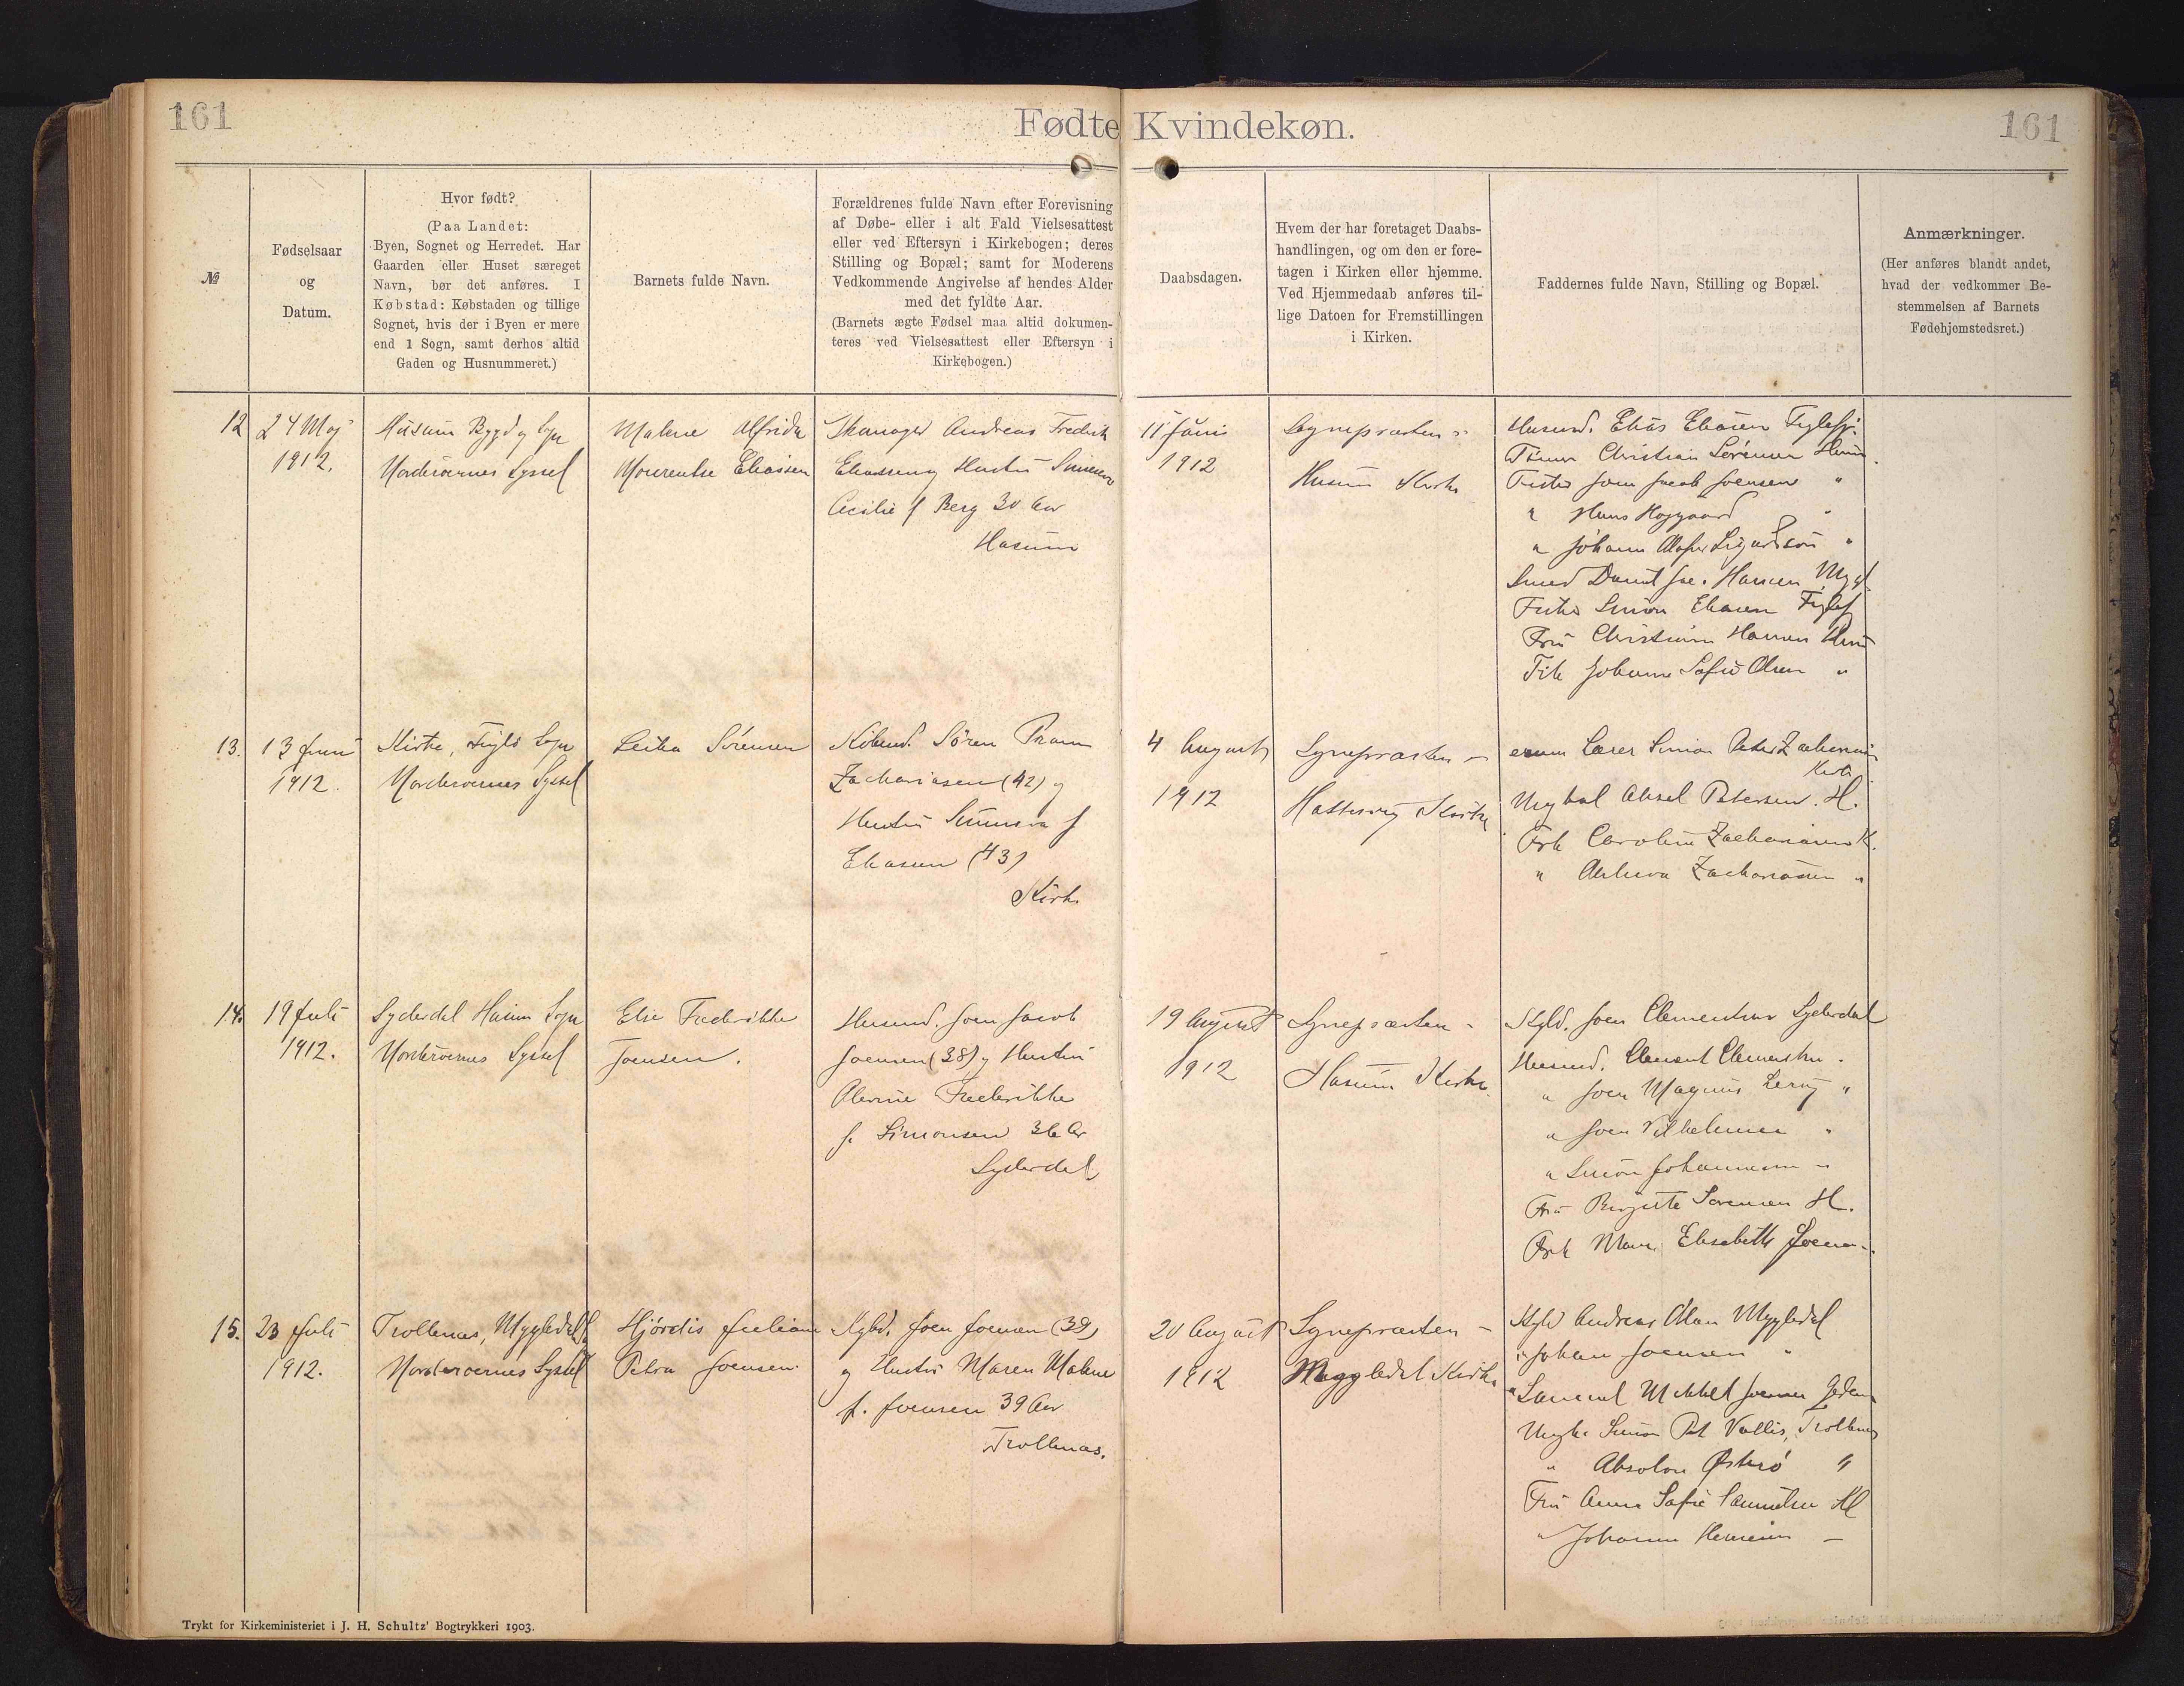 161
Fødte Kvindekøn.
161
№
Fødselsaar
og
Datum.
Hvor født?
(Paa Landet:
Byen, Sognet og Herredet. Har
Gaarden eller Huset særeget
Navn, bør det anføres. I
Købstad: Købstaden og tillige
Sognet, hvis der i Byen er mere
end 1 Sogn, samt derhos altid
Gaden og Husnummeret.)
Barnets fulde Navn.
Forældrenes fulde Navn efter Forevisning
af Døbe- eller i alt Fald Vielsesattest
eller ved Eftersyn i Kirkebogen; deres
Stilling og Bopæl; samt for Moderens
Vedkommende Angivelse af hendes Alder
med det fyldte Aar.
(Barnets ægte Fødsel maa altid dokumen-
teres ved Vielsesattest eller Eftersyn i
Kirkebogen.)
Daabsdagen.
Hvem der har foretaget Daabs-
handlingen, og om den er fore-
tagen i Kirken eller hjemme.
Ved Hjemmedaab anføres til-
lige Datoen for Fremstillingen
i Kirken.
Faddernes fulde Navn, Stilling og Bopæl.
Anmærkninger.
(Her anføres blandt andet,
hvad der vedkommer Be-
stemmelsen af Barnets
Fødehjemstedsret.)
12
24 Maj
1912.
Husum Bygd og Sogn
Norderøernes Syssel
Malene Alfrida
Eliassen
Andreas Frederik
Eliassen og Hustru
Cecilie f Berg 30 Aar
Husum
11 Juni
1912
Sognepræsten
Husum Kirke
Husmd. Elias Eliasen
Christian Sørensen
Joen Jacob Joensen "
" Hans Højgaard "
" Johann Sigurdsson "
Smed Hansen
Simon Eliasen
Fru Hansen
Johanne Sofie Olsen "
13.
13 Juni
1912.
Kirke, Fuglø Sogn
Norderøernes Syssel
Sørensen
Købmd. Søren
Zachariasen (42) og
Hustru Sunneva f
Eliasen (43)
Kirke
4 August
1912
Sognepræsten
Hattervig Kirke
Lærer Simon Peter
Kirke
Ungkal Aksel Petersen. H.
Frk Caroline Zachariasen K.
" Zachariasen "
14.
19 Juli
1912.
Syderdal Husum Sogn
Norderøernes Syssel
Else Frederikke
Joensen.
Husmd. Joen Jacob
Joensen (38) og Hustru
Frederikke
f. Simonsen 36 Ar
Syderdal
19 August
1912
Sognepræsten
Husum Kirke
Joen Clementsen Syderdal
Husmd. Clement Clementsen
" Joen Magnus "
" Joen Vilhelmsen "
" Simon Johannesen "
Fru Birgitte Sørensen H.
Frk Elisabeth Joensen
15.
23 Juli
1912.
Trollenæs, Myggledal
Norderøernes Syssel
Hjørdis Juliane
Petra Joensen
Joen Joensen (39)
og Hustru Maren Malene
f. Joensen 39 Aar
Trollenæs.
20 August
1912
Sognepræsten
Myggledal Kirke
Andreas Myggledal
" Johan Joensen "
" Samuel Mikkel Joensen
Simon Trollenæs
" Absolon Østerø "
Fru Anna Sofie Samuelsen
" Johanne
Trykt for Kirkeministeriet i J. H. Schultz' Bogtrykkeri 1903.